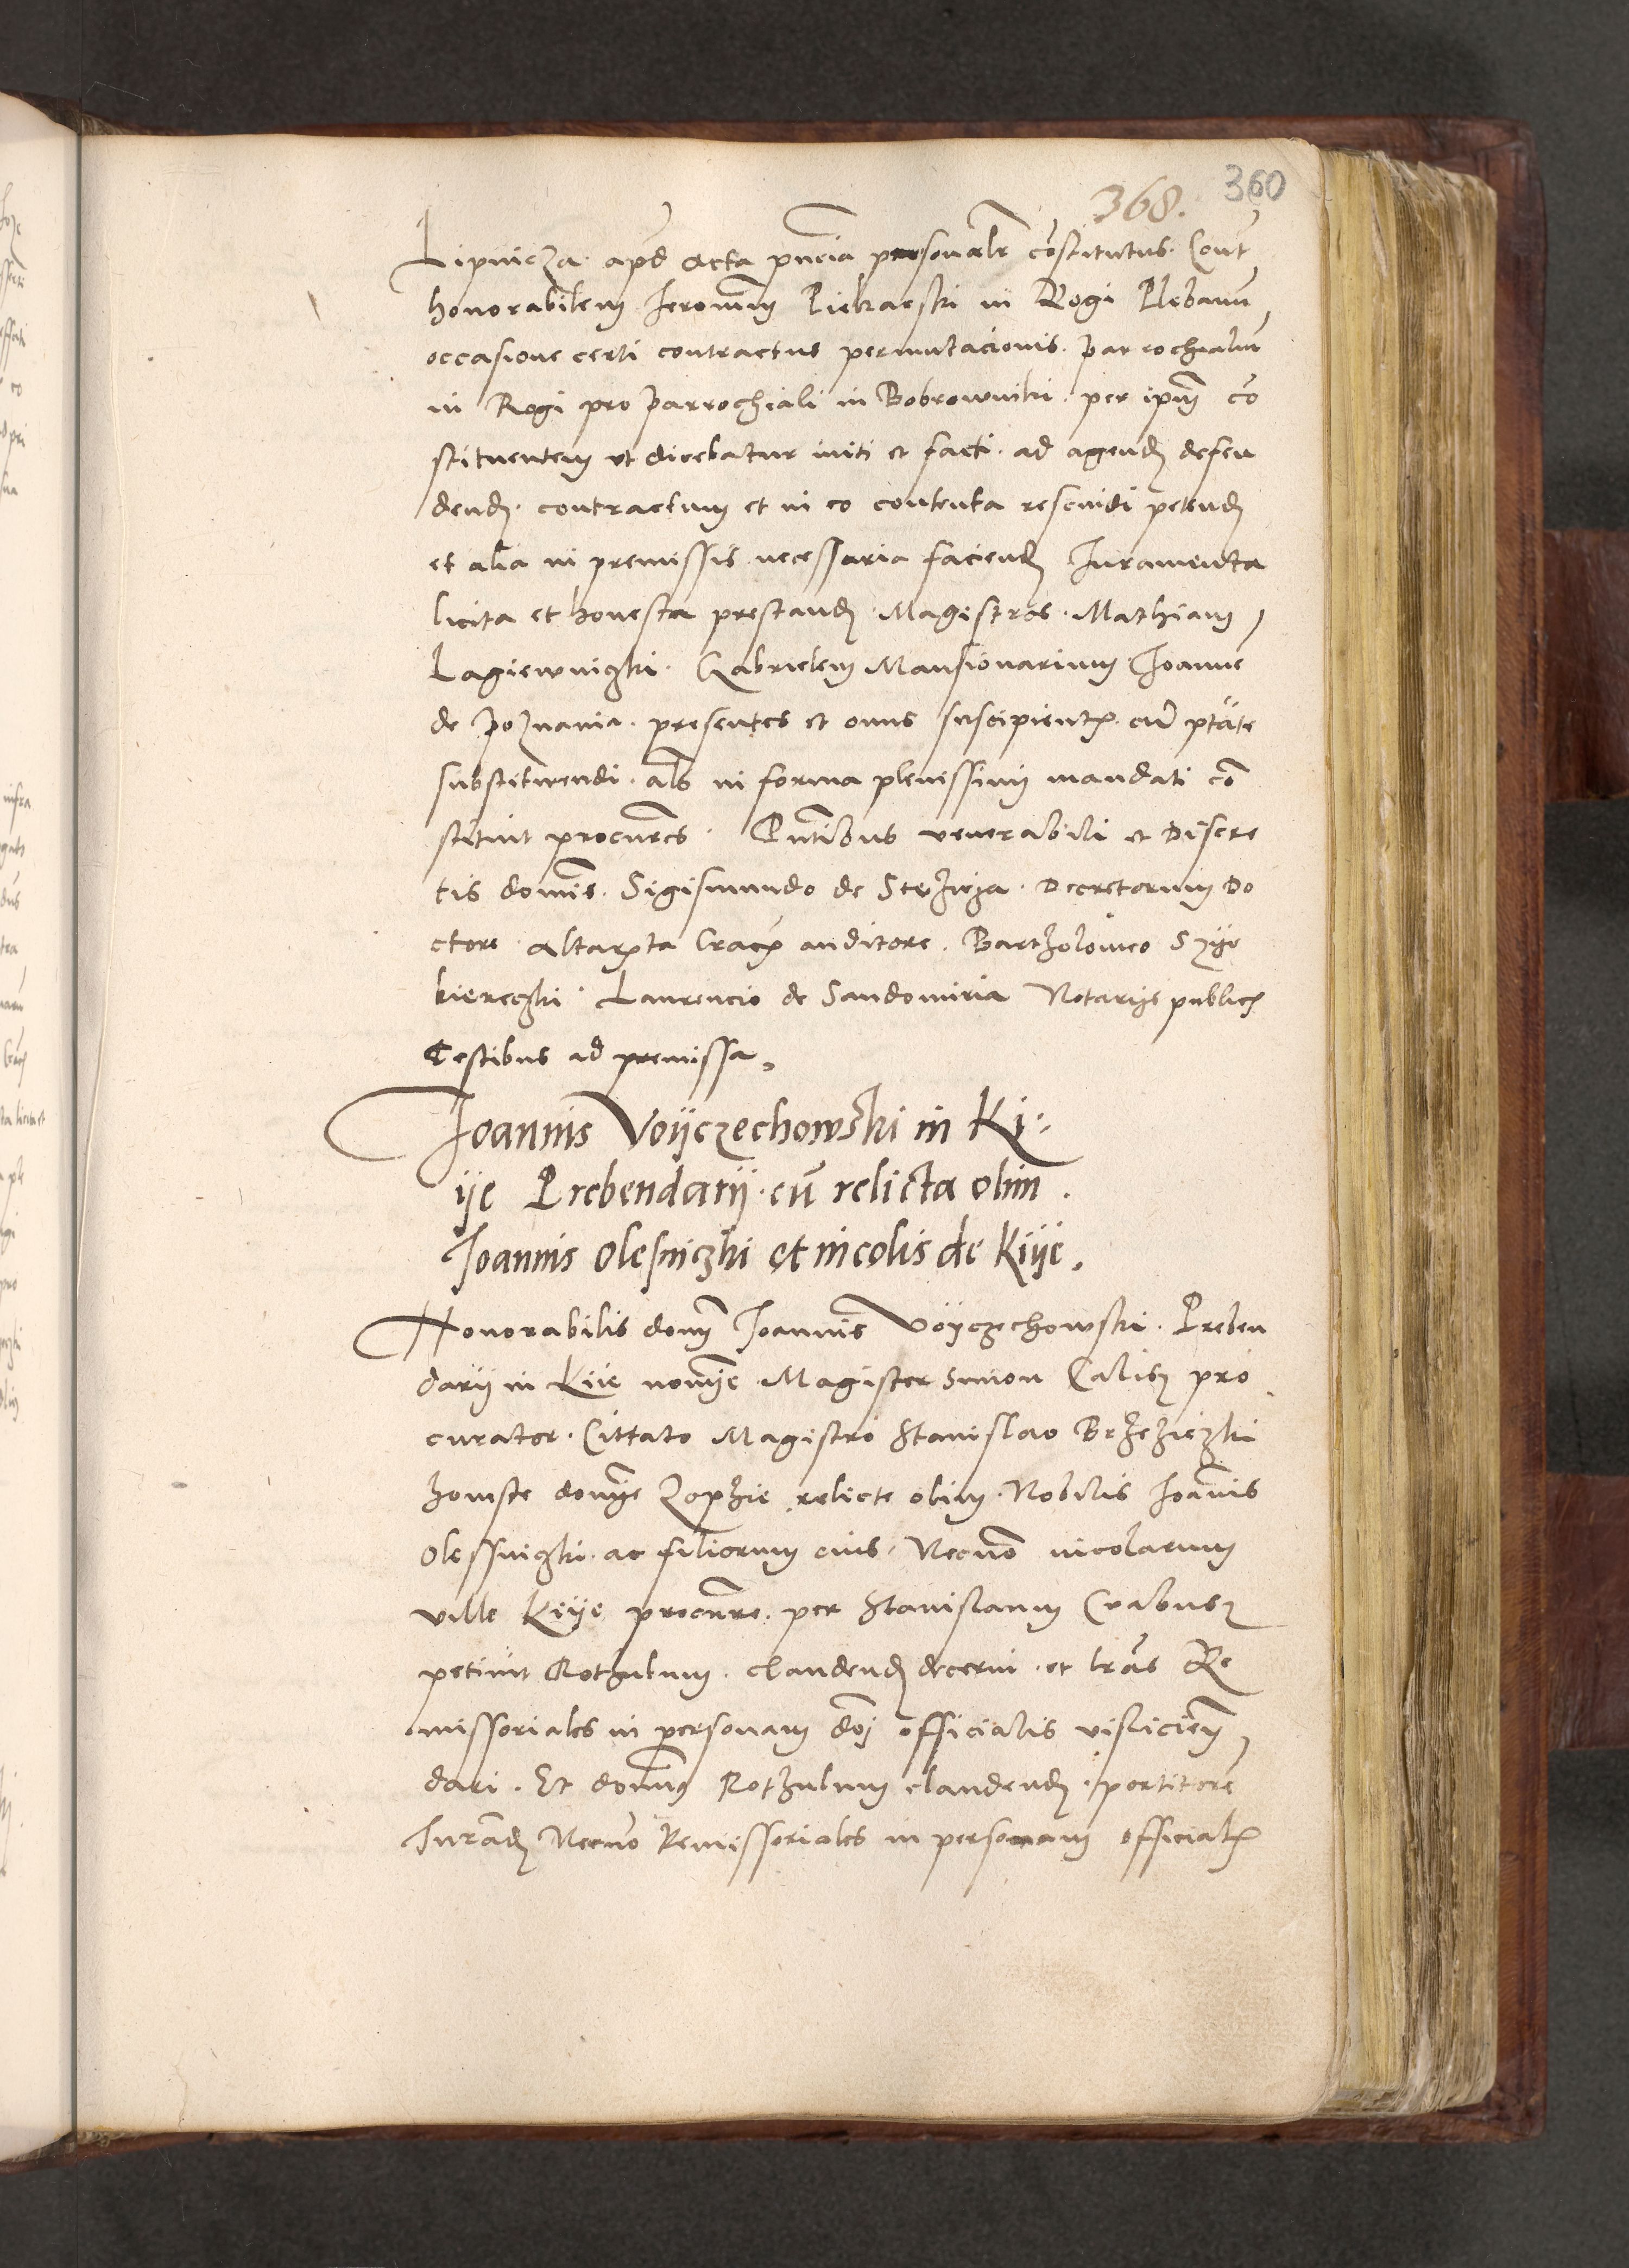 368. 360
Lipnicza. apd acta pncia personalr cõstitutus. Cont
honorabilem Jeronimũ Piekarski in Rogi Plebanũ
occasione certi contractus permutacionis. parrochialiũ
in Rogi pro parrochiali in Bobrowniki. per ipm̃ cõ
stituentem ut dicebatur initi et facti. ad agend defen
dend. contractum et in eo contenta rescindi petend
et alia in premissis necessaria faciend Juramenta
licita et honesta prestand. Magistros. Mathiam
Lagiewniczki. Gabrielem Mansionarium Joanne
de poznania. presentes et onus suscipientes. cũ ptãte
substituendi. als in forma plenissimi mandati cõ
stituit procures. Pntibus venerabili et Discre
tis domis. Sigismundo de Stezicza. Decretorum Do
ctore altarista Crac auditore. Bartholomeo Szye
kierczki. Laurencio de Sandomiria Notarijs publicis
Testibus ad premissa.
Joannis Voyczechowski in Ki:
ye Prebendarij. cũ relicta olim.
Joannis Olesniczki et incolis de Kiye.
Honorabilis domi Joannis Voyczechowski. Preben
darij in Kiie nomine Magister Simon Calisz pro
curator. Cittato Magistro Stanislao Brzeziczki
honeste domine Zophie relicte olim. Nobilis Joannis
Olessniczki. ac filiorum eius. Necnõ incolarum
ville Kiye procure. per Stanislaum
petiuit Rothulum. claudend decerni. et lrãs Re
missoriales in personam dni officialis visliciens
dari. Et dominus Rothulum claudend. portitore
Jurand Necnõ Remissoriales in personam officialis